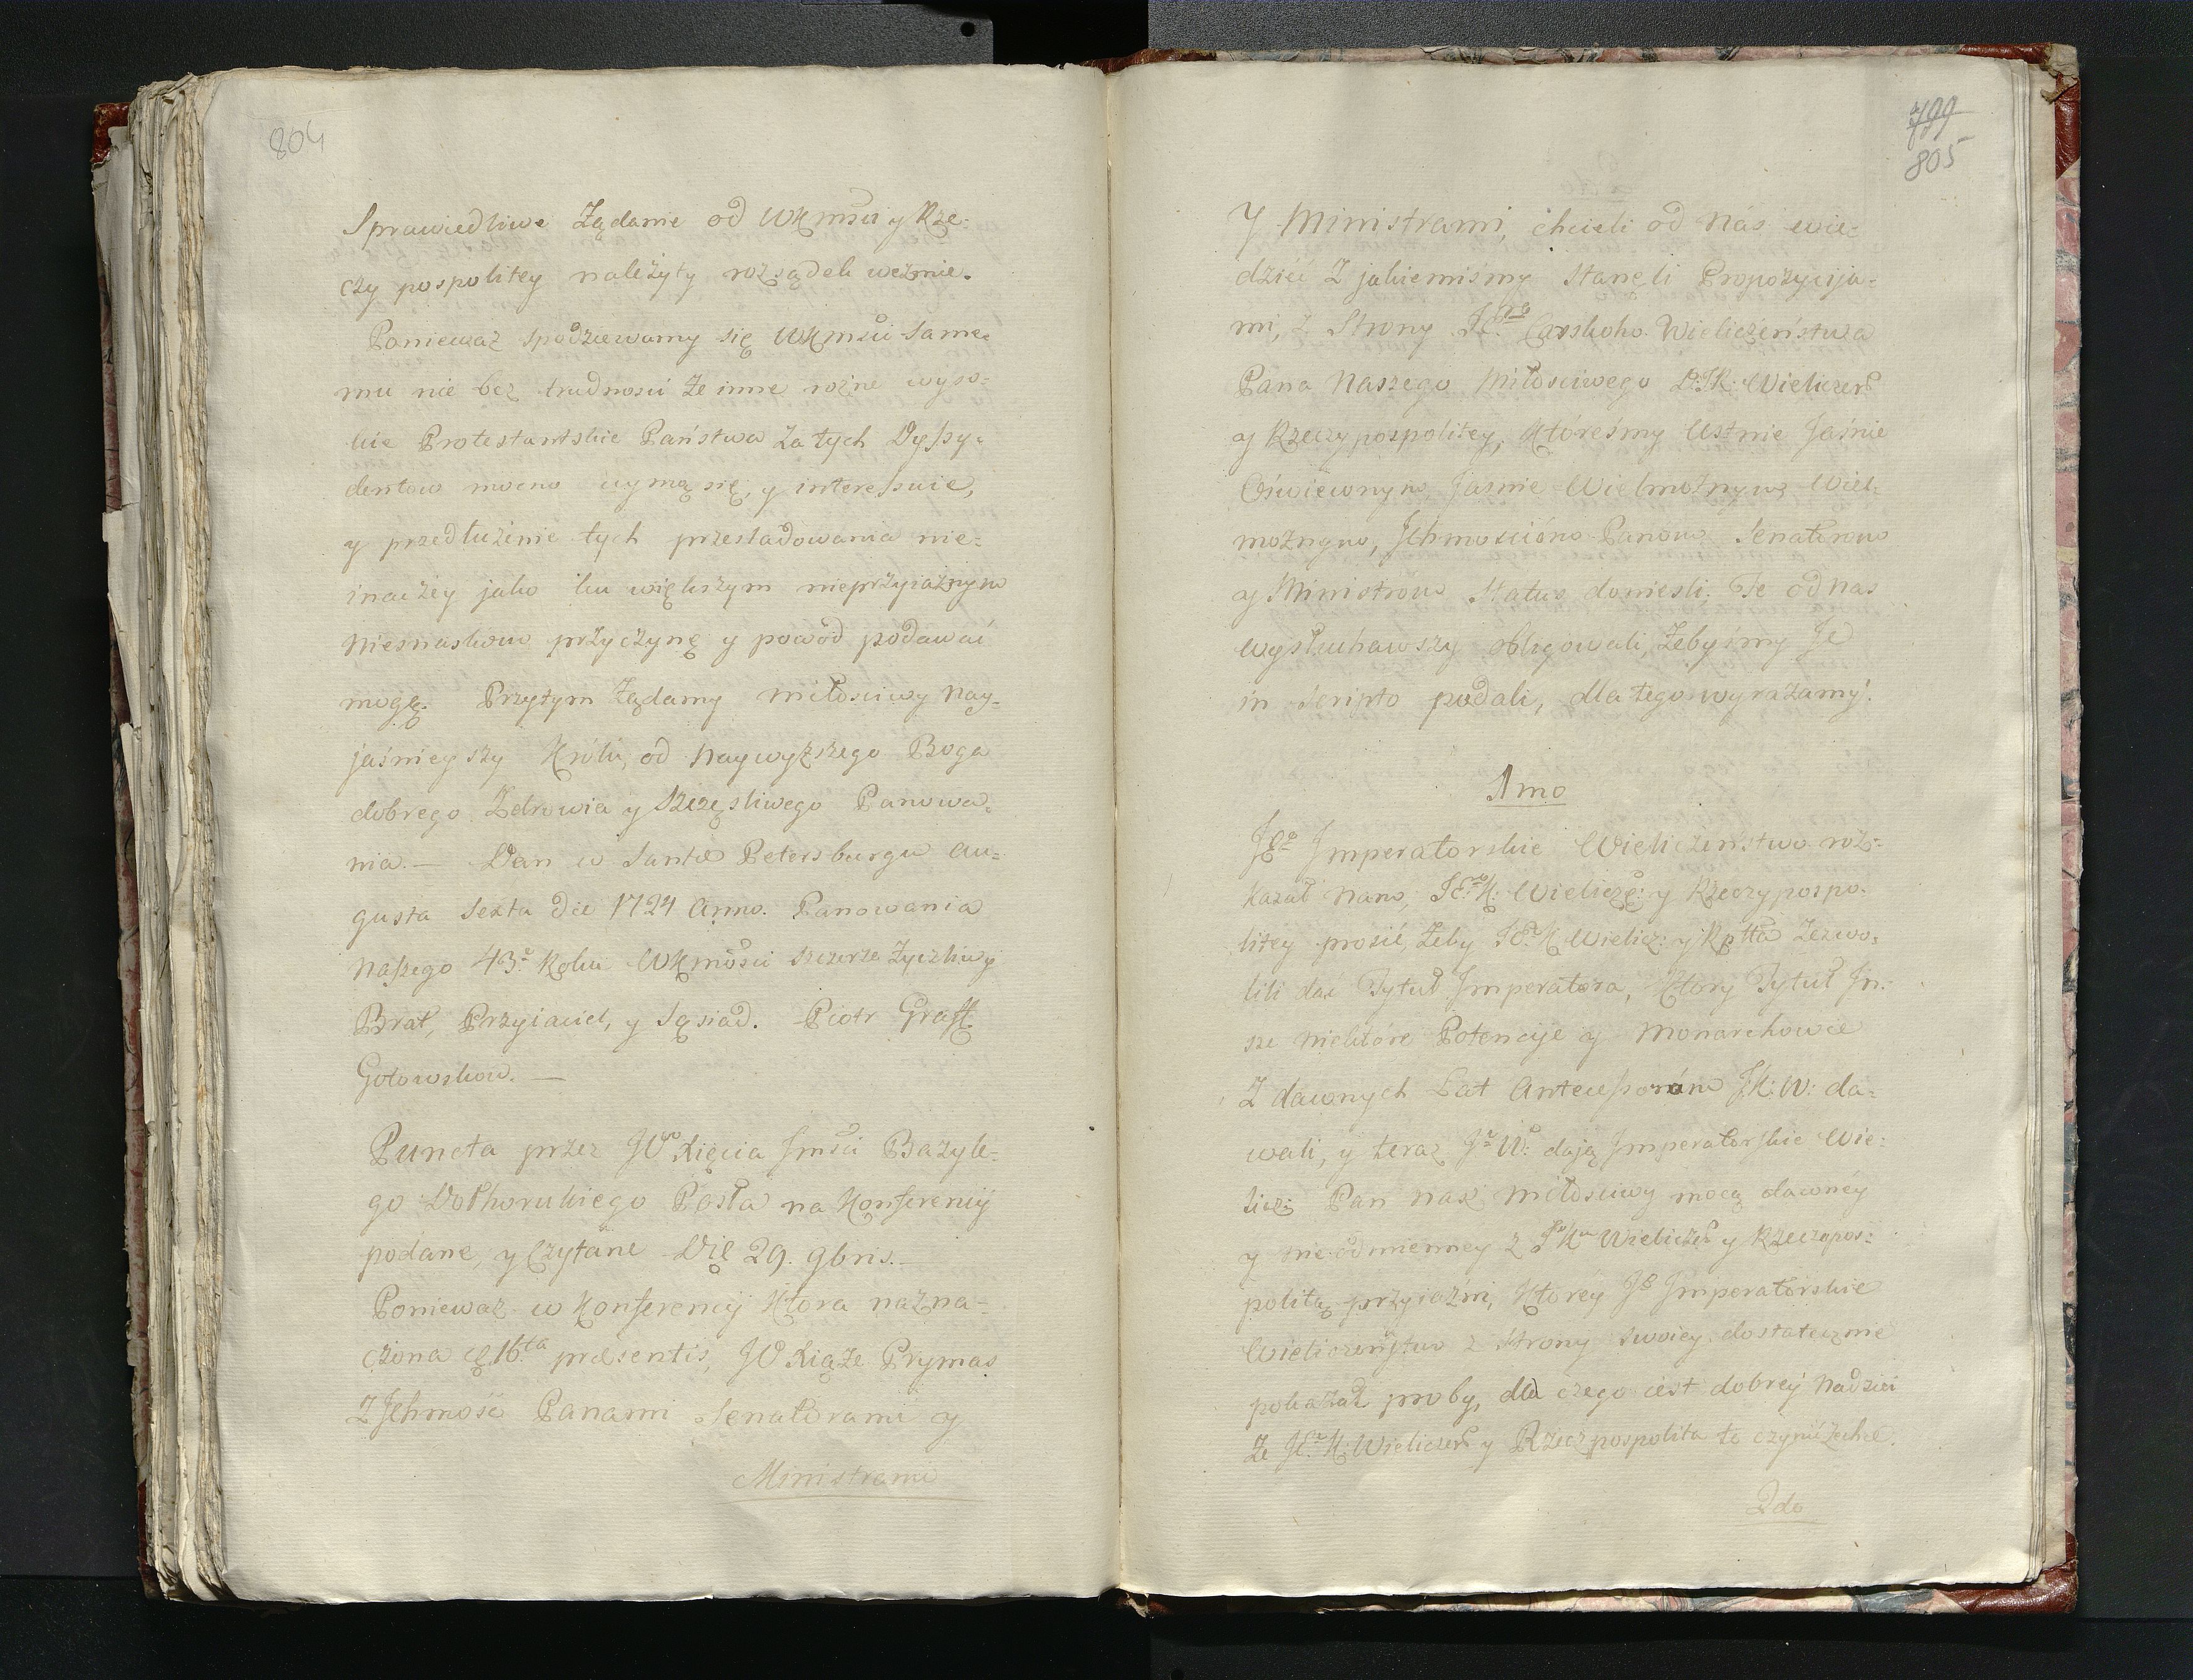 804
Sprawiedliwe Żądanie od WKmści y Rze-
czy pospolitey należyty rozsądek weźmie.
Ponieważ spodziewamy się WKmści same-
mu nie bez trudności że inne rożne wyso-
kie Protestantskie Państwa za tych Dyssy-
dentow mocno uymą się, y interessuie,
y przedłużenie tych prześladowania nie-
inaczey jako ku większym nieprzyiaznym
Niesnaskom przyczynę y powod podawać
mogę. Przytym Żądamy miłosciwy Nay-
jaśnieyszy Królu, od Naywyższego Boga
dobrego Zdrowia y szczęsliwego Panowa-
nia. — Dan w Sankt Petersburgu au-
gusta Sexta die 1724 Anno. Panowania
Naszego 43º Roku WKmości szczerze życzliwy
Brat, Przyiaciel, y Sąsiad. Piotr Graff
Gołowskow. —
Puncta przez JWº Xięcia Jmści Bazyle-
go Dołhorukiego Posła na Konferencij
podane, y Czytane Die 29. 9bris. —
Ponieważ w Konferencij Ktora nazna-
czona 16ta præsentis, JO Xiąże Prymas
Z Jchmość Panami Senatorami y
Ministrami
799
805
Y Ministrami, chcieli od Nas wie-
dzieć Z jakiemiśmy Stanęli Propozycija-
mi, z Strony JEgo Carskoho Wieliczeństwa
Pana Naszego Miłosciwego D: JK: Wieliczeń
y Rzeczypospolitey, Któreśmy Ustnie Jaśnie
Oświeconym, Jaśnie Wielmożnym Wiel-
możnym, Jchmościóm Panom Senatorom
y Ministróm Status doniesli; Te od nas
wysłuchawszy obligowali, Żebyśmy Je
in scripto podali, dla tego wyrażamy.
1mo
JEº Jmperatorskie Wieliczeństwo roz-
kazał nam, JEº K: Wielicze: y Rzeczypospo-
litey prosić, Żeby JEº K Wielicz: y Rptta Zezwo-
lili dać Tytuł Jmperatora, Ktory Tytuł Jn-
sze niektóre Potencyje y Monarchowie
Z dawnych Lat Antecessorom J:K:W: da-
wali, y teraz Jº W: dają Jmperatorskie Wie-
licz: Pan nasz miłosciwy mocą dawnéy
y nieodmienney z Jº Kº Wielicze y Rzecząpos-
politą przyiaźni, Ktoréy Jº Jmperatorskie
Wieliczeństwo z Strony swoiey dostatecznie
pokazał proby, dla czego iest dobrey Nadziei
Że JEº K: Wieliczeń y Rzeczpospolita to czynić zechce.
2do